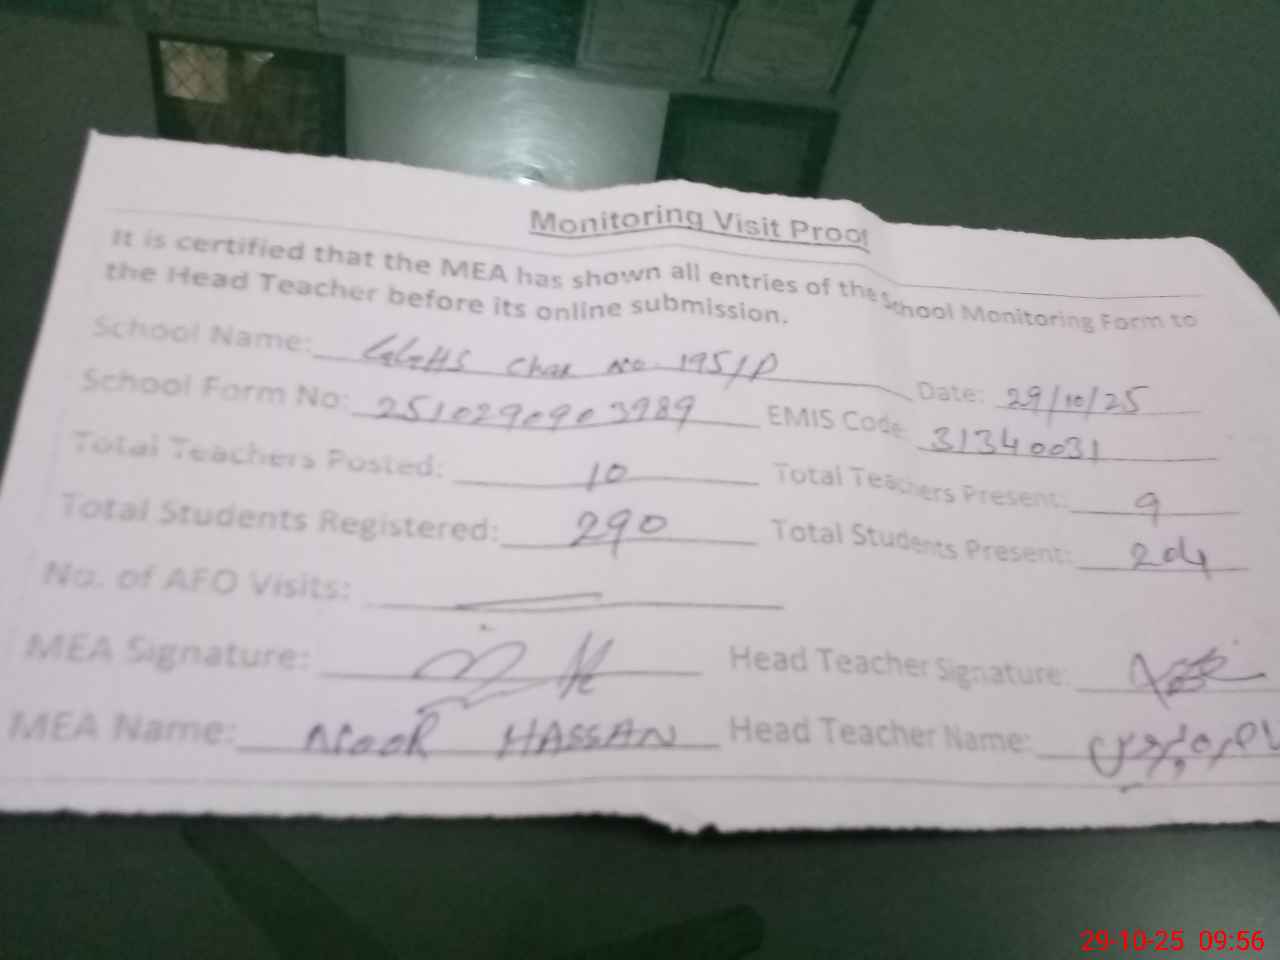 Monitoring Visit Proof
It is certified that the MEA has shown all entries of the School Monitoring Form to
the Head Teacher before its online submission.
School Name: GGHS Chak no. 195/P Date: 29/10/25
School Form No: 2510290903989 EMIS Code: 31340031
Total Teachers Posted: 10 Total Teachers Present: 9
Total Students Registered: 290 Total Students Present: 204
No. of AFO Visits:
MEA Signature: Head Teacher Signature:
MEA Name: Noor HASSAN Head Teacher Name:
29-10-25 09:56